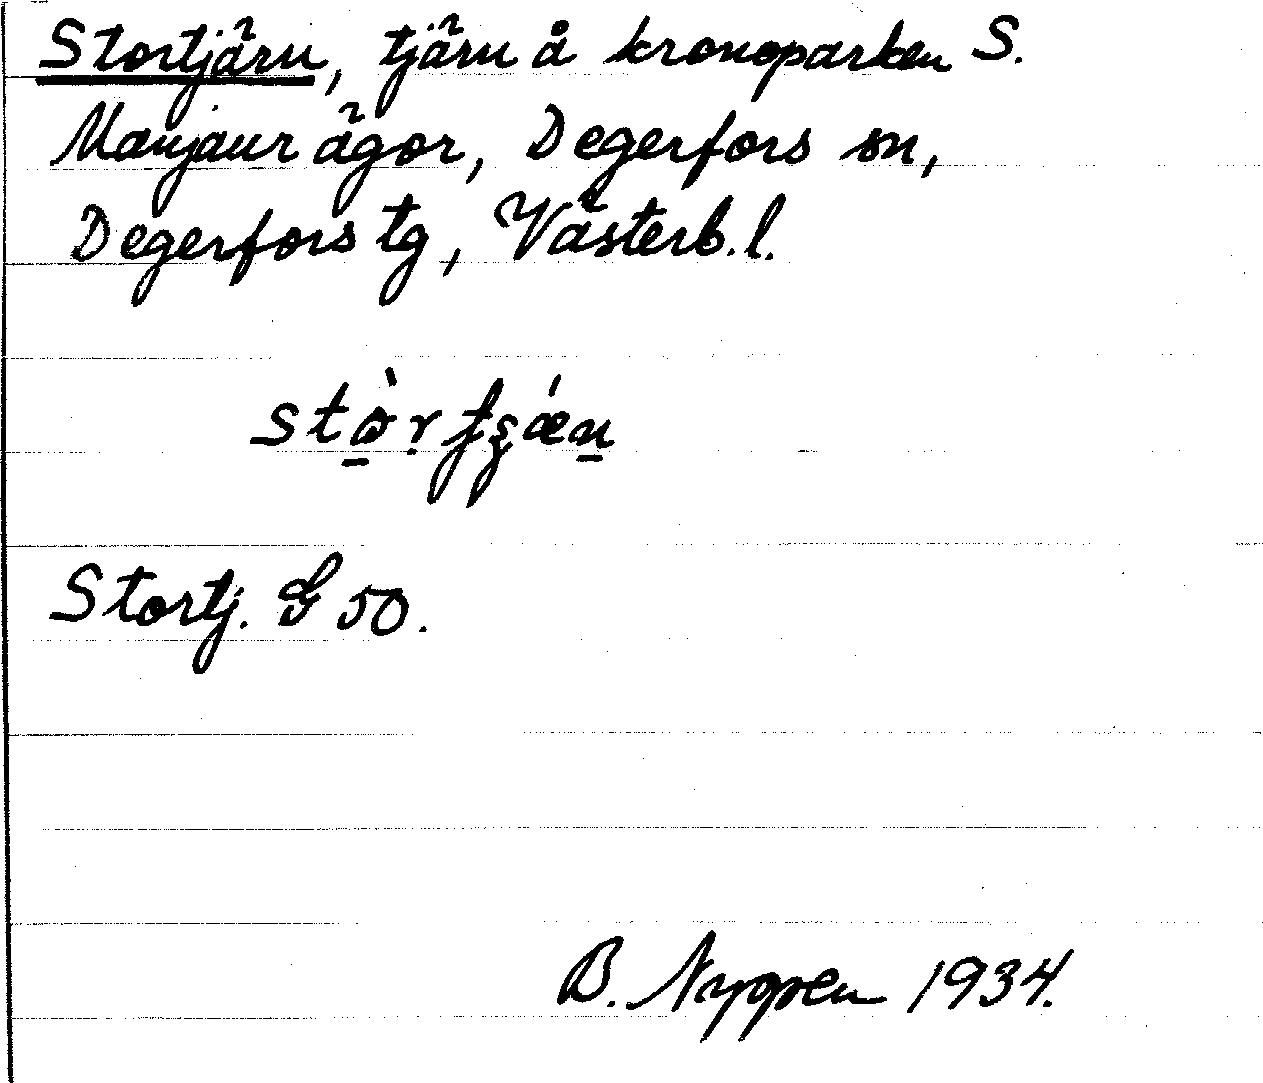 Stortjärn, tjärn å kronoparken S.
Manjaur ägor, Degerfors sn,
Degerfors tg, Västerb. l.
Stortj. G 50.
B. Nygren 1934.